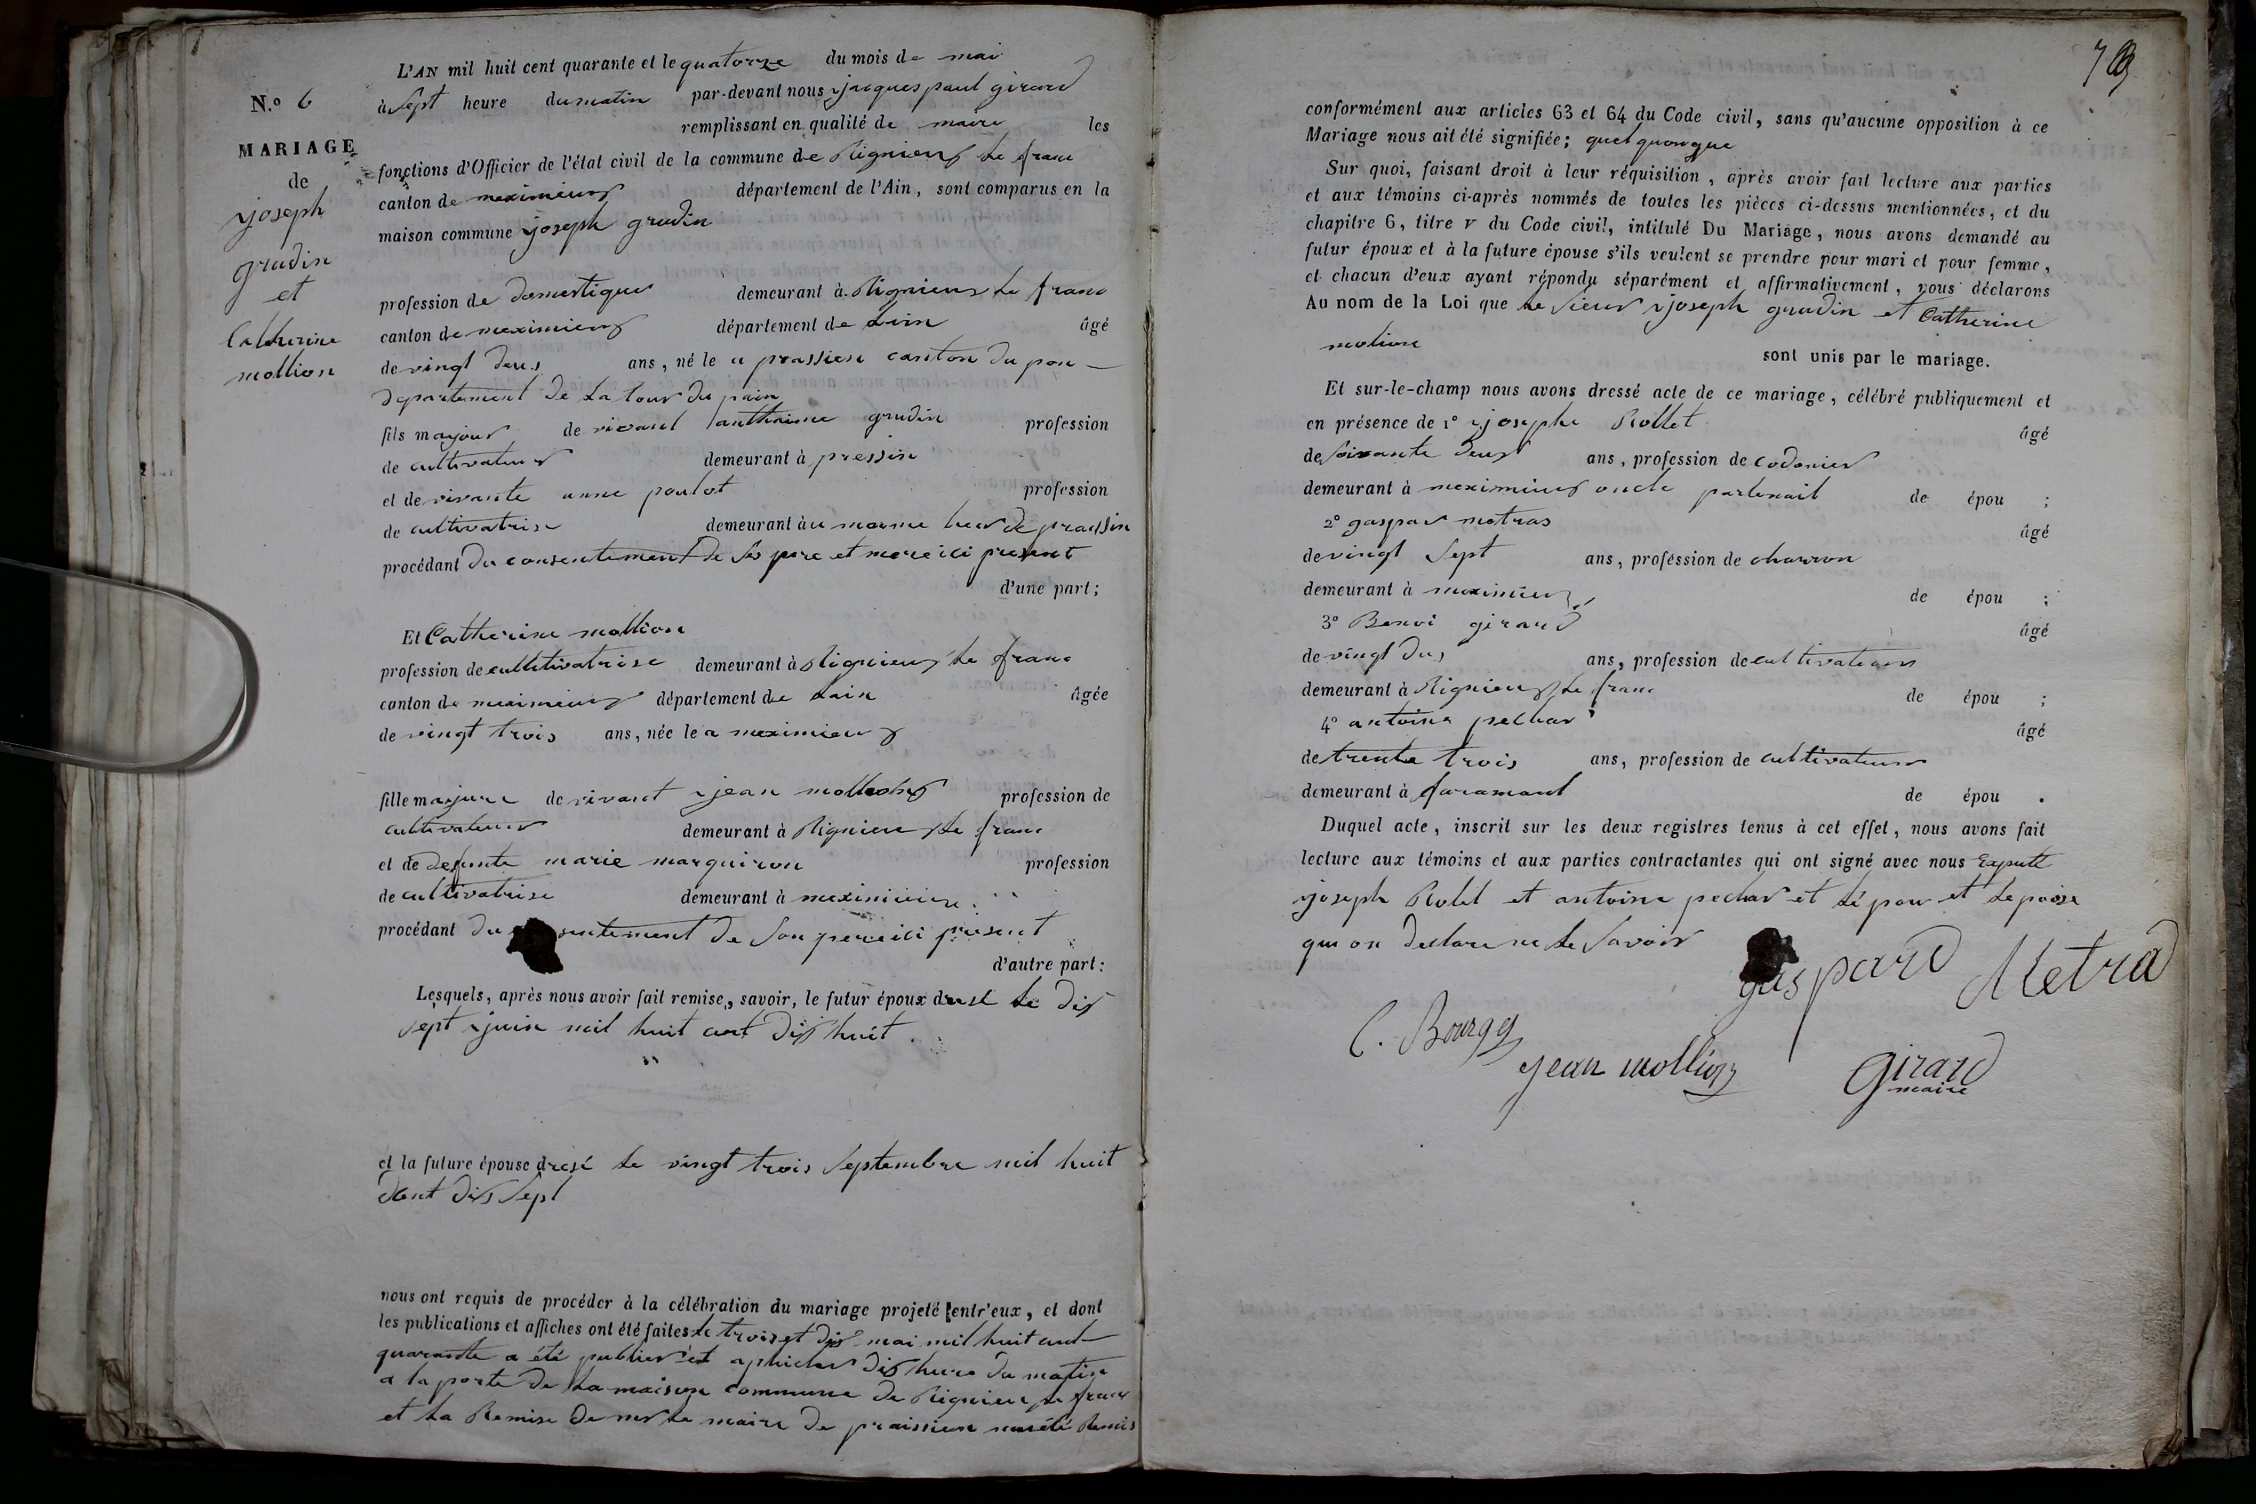 L'AN mil huit cent quarante et le quatorze du mois de mai
N.º 6
à sept heure du matin par-devant nous jacques paul girard
remplissant en qualité de maire les
MARIAGE
fonctions d'Officier de l'état civil de la commune de Rignieux le franc
de
canton de meximieux département de l'Ain, sont comparus en la
joseph
maison commune joseph grudin
grudin
et
profession de domestique demeurant à Rignieux le franc
Catherine
canton de meximieux département de Lain âgé
mollion
de vingt deus ans, né le a prassien canton du pon
departement de la tour du pain
fils majour de vivant anthoine grudin profession
de cultivateur demeurant à pressin
et de vivante anne poulot profession
de cultivatrise demeurant à u mesme lieu de praissin
procédant du consentement de ses pere et mere ici present
d'une part;
Et Catherine mollion
profession de cultitivatrise demeurant à Rignieux le franc
canton de meximieux département de Lain âgée
de vingt trois ans, née le a meximieux
fille majure de vivant jean profession de
cultivateur demeurant à Rignieux le franc
et de defunte marie marquiron profession
de cultivatrise demeurant à meximieux
procédant du sentement de son pere ici present
d'autre part:
Lesquels, après nous avoir fait remise, savoir, le futur époux le dix
sept juin mil huit cent dix huit
et la future épouse dresé le vingt trois septembre mil huit
dix sept
nous ont requis de procéder à la célébration du mariage projeté entr'eux, et dont
les publications et affiches ont été faites le trois et dix mai mil huit cent
quarante a été publier et aphicher dix heure du matin
a la porte de la maison commune de Rignieux le franc
et la Remise de mr le maire de praissien Remis
conformément aux articles 63 et 64 du Code civil, sans qu'aucune opposition à ce
Mariage nous ait été signifiée; quelquonque
Sur quoi, faisant droit à leur réquisition, après avoir fait lecture aux parties
et aux témoins ci-après nommés de toutes les pièces ci-dessus mentionnées, et du
chapitre 6, titre v du Code civil, intitulé Du Mariage, nous avons demandé au
futur époux et à la future épouse s'ils veulent se prendre pour mari et pour femme,
et chacun d'eux ayant répondu séparément et affirmativement, nous déclarons
Au nom de la Loi que le sieur joseph grudin et Catherine
molion sont unis par le mariage.
Et sur-le-champ nous avons dressé acte de ce mariage, célébré publiquement et
en présence de 1º josephe Rollet âgé
de soixante deus ans, profession de codonier
demeurant à meximieux oncle parternail de épou ;
2º gaspar metras âgé
de vingt sept ans, profession de charron
demeurant à meximieux de épou ;
3º Benoi girard âgé
de vingt dus ans, profession de cultivateur
demeurant à Rignieux le franc de épou ;
4º antoine pechar âgé
de trente trois ans, profession de cultivateur
demeurant à faramant de épou .
Duquel acte, inscrit sur les deux registres tenus à cet effet, nous avons fait
lecture aux témoins et aux parties contractantes qui ont signé avec nous Expté
joseph Rolet et antoine pechar et lépou et lepouse
qui on declare ne le savoir
gaspard Metra
C. Bourgy
jean mollion
Girard
maire